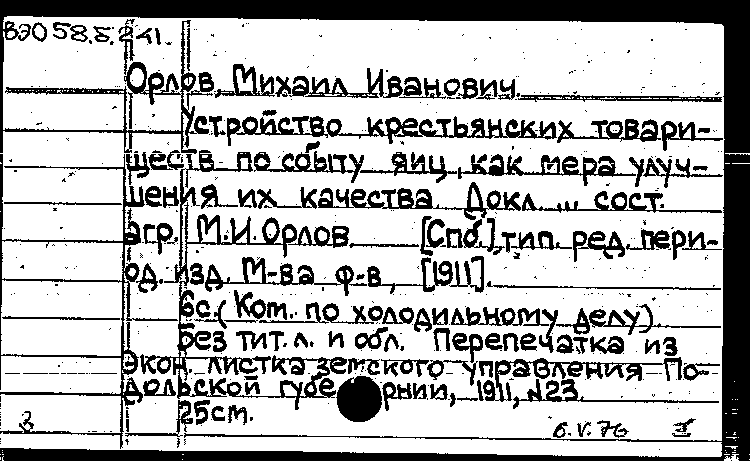 ВЭО 58.5.241.
Орлов, Михаил Иванович.
Устройство крестьянских товари-
ществ по сбыту яиц, как мера улуч-
шения их качества. Докл. ... сост.
агр. М.И. Орлов. [Спб.], тип. ред. пери-
од. изд. М-ва ф-в, [1911].
6с. (Ком. по холодильному делу).
Без тит.л. и обл. Перепечатка из
Экон. листка земского управления По-
дольской губернии, 1911, №23.
25см.
6.V.76